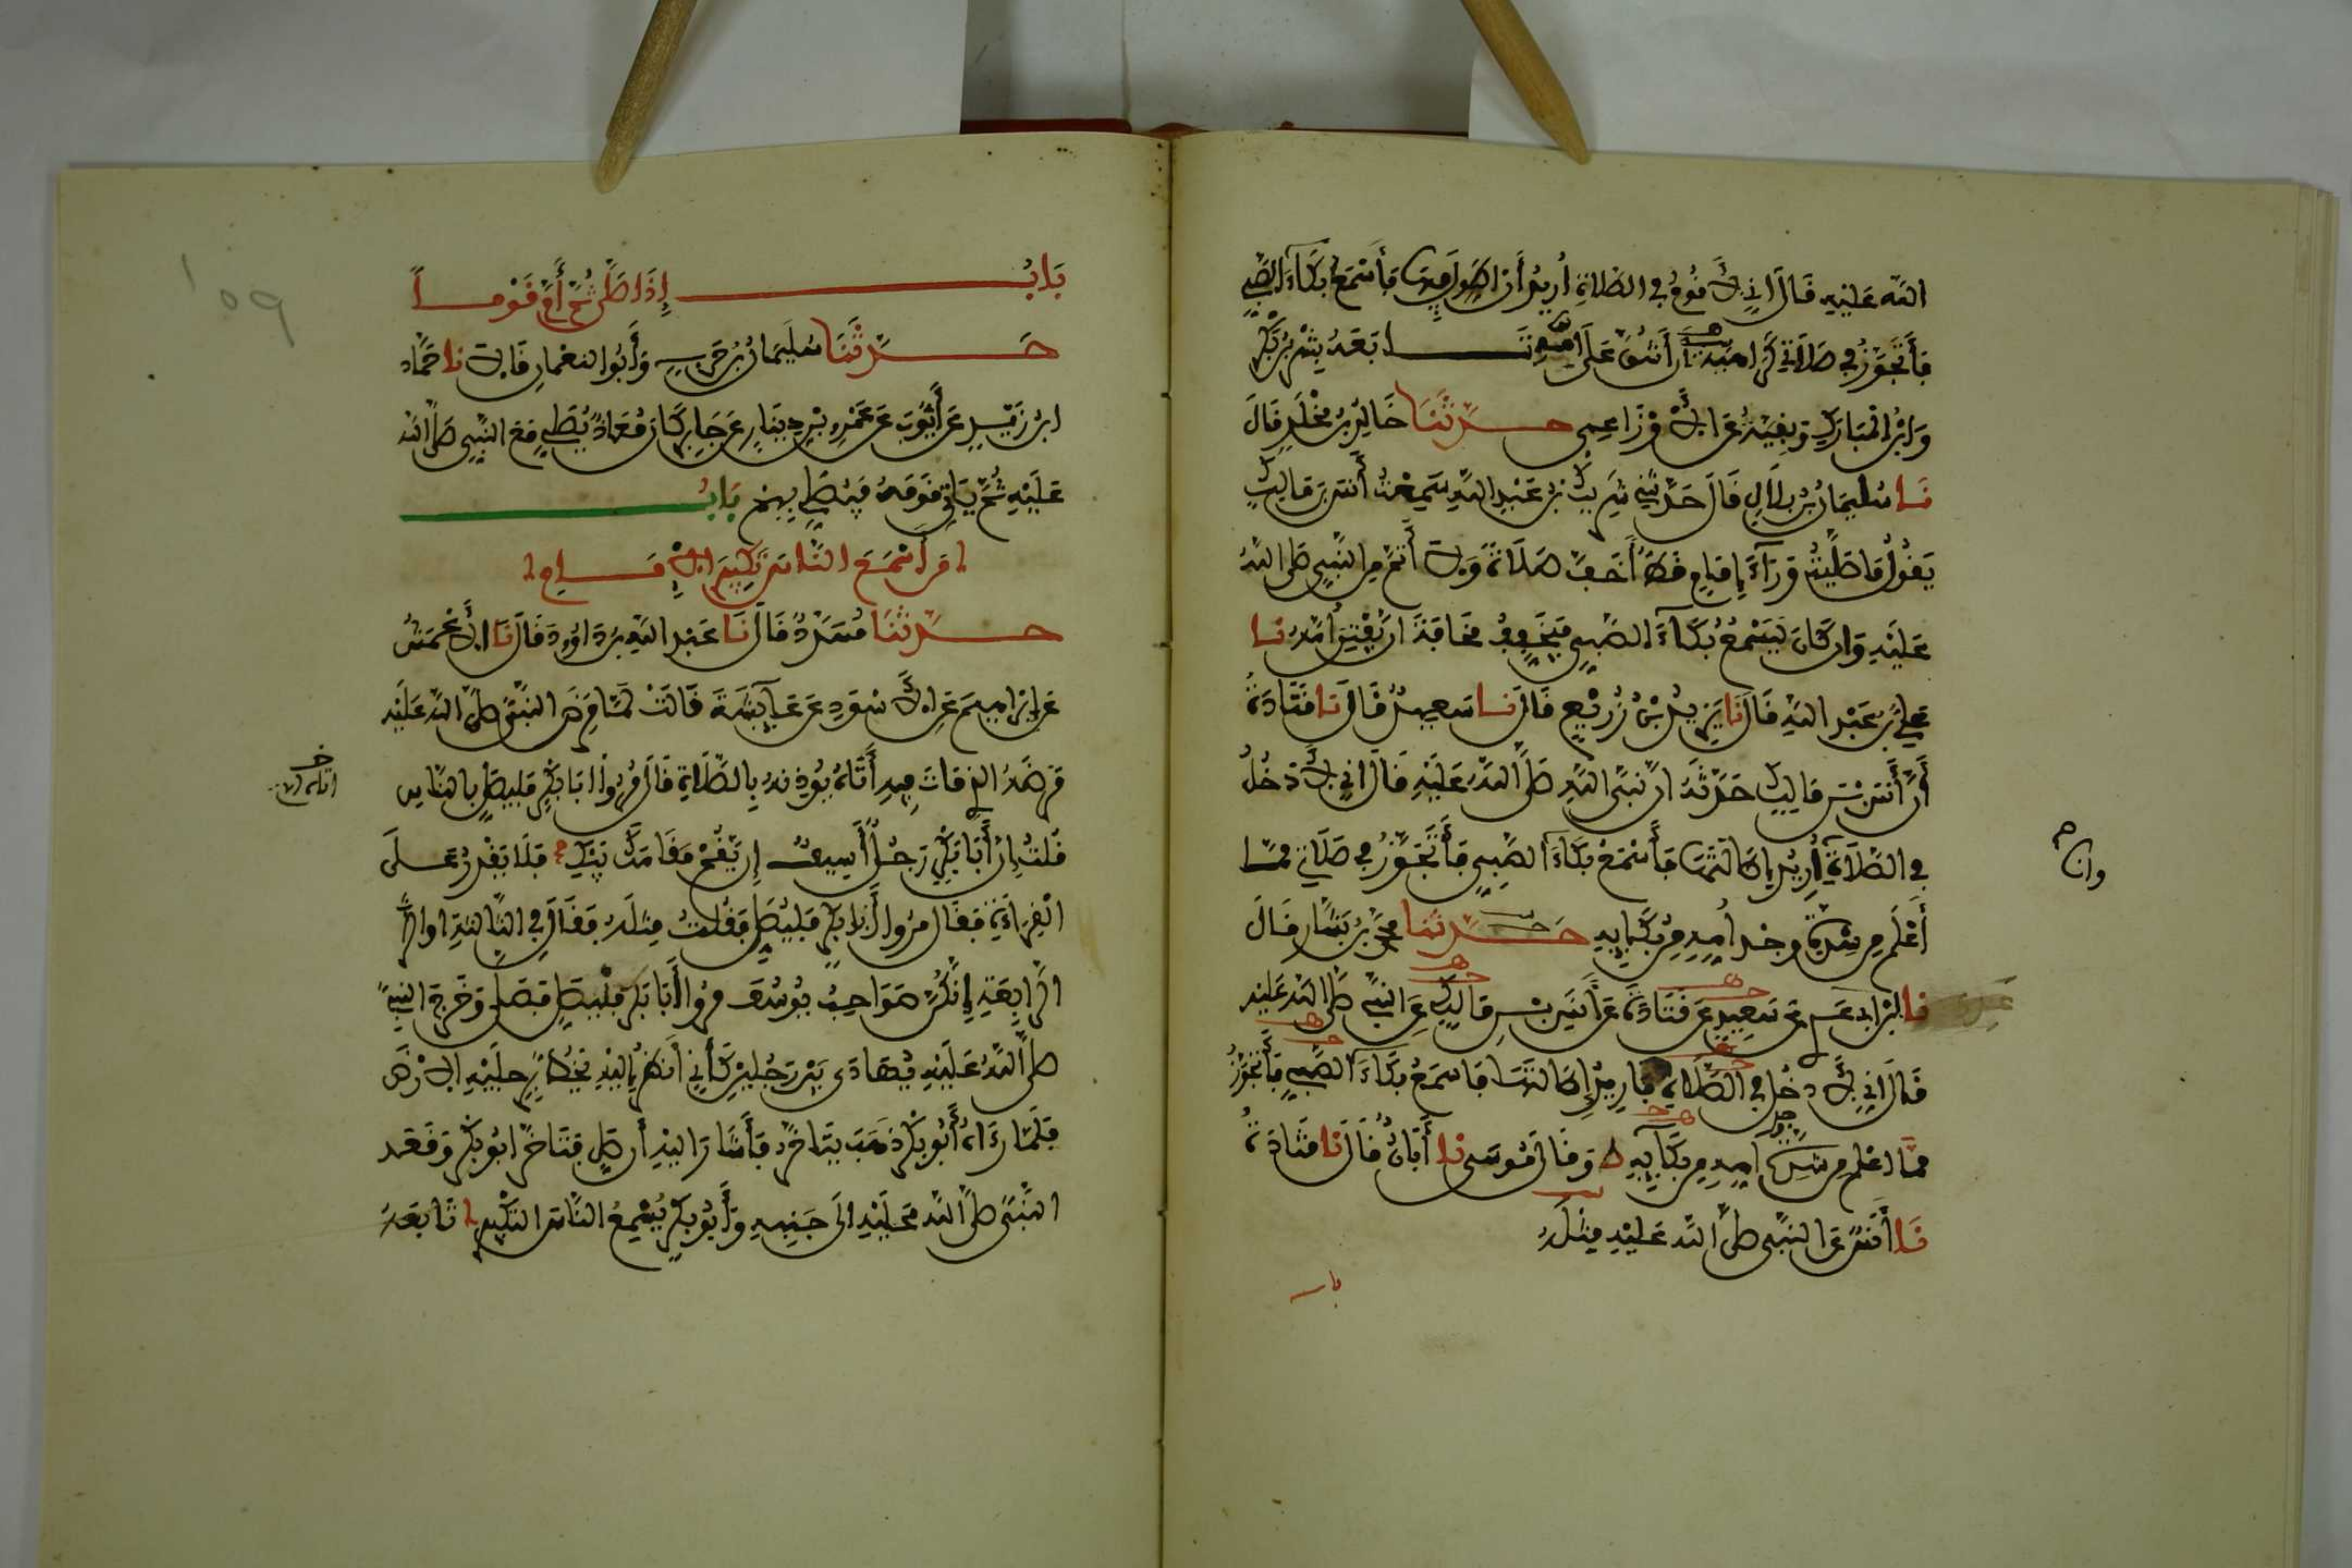 الله عَلَيْهِ قَالَ اِنِّي لَأَقُومُ فِي الصَّلَاةِ أُرِيدُ أَنْ اطَوِّلَ فِيهَا فَأَسْمَعُ بُكَاءَ الصَّبِيِّ
فَأَتَجَوَّزُ فِي صَلَاتِي كَرَاهِيَةَ أَنْ أَشُقَّ عَلَى أُمِّهِ تَابَعَهُ بِشْرُ بْنُ بَكْرٍ
وَابْنُ الْمُبَارَكِ وَبَقِيَّةُ عَنِ الْأَوْزَاعِي حَدَّثَنَا خَالِدُ بْنُ مَخْلَدٍ قَالَ
نَا سُلَيْمَانُ بْنُ بِلَالٍ قَالَ حَدَّثَنِي شَرِيكُ بْنُ عَبْدِ اللهِ سَمِعْتُ أَنَسَ بْنَ مَالِكٍ
يَقُولُ مَا صَلَّيْتُ وَرَاءَ إِمَامٍ قَطُّ أَخَفَّ صَلَاةً وَلَا أَتَمَّ مِنَ النَّبِيِّ صَلَّى اللهُ
عَلَيْهِ وَانْ كَانَ لَيَسْمَعُ بُكَاءَ الصَّبِيِّ فَيُخَفِّفُ مَخَافَةَ انْ تُفْتَتَنَ أُمُّهُ نَا
عَلِيُّ بْنُ عَبْدِ اللهِ قَالَ نَا يَزِيدُ بْنُ زُرَيْعٍ قَالَ نَا سَعِيدٌ قَالَ نَا قَتَادَةُ
أَنَّ أَنَسَ بْنَ مَالِكٍ حَدَّثَهُ انَّ نَبِيَّ اللهِ صَلَّى اللهُ عَلَيْهِ قَالَ اِنِّي لَأَدْخُلُ
فِي الصَّلَاةِ أُرِيدُ إِطَالَتَهَا فَأَسْمَعُ بُكَاءَ الصَّبِيِّ فَأَتَجَوَّزُ فِي صَلَاتِي مِمَّا
وانا
أَعْلَمُ مِنْ شِدَّةِ وَجْدِ أُمِّهِ مِنْ بُكَائِهِ حَدَّثَنَا مُحَمَّدُ بْنُ بَشَّارٍ قَالَ
نا ابْنُ ابِي عَدِيٍّ عَنْ سَعِيدٍ عَنْ قَتَادَةَ عَنْ أَنَسِ بْنِ مَالِكٍ عَنِ النَّبِيِّ صَلَّى اللهُ عَلَيْهِ
قَالَ اِنِّي لَأَدْخُلُ فِي الصَّلَاةِ فَارِيدُ إِطَالَتَهَا فَاسْمَعُ بُكَاءَ الصَّبِيِّ فَأَتَجَوَّزُ
مِمَّا اعْلَمُ مِنْ شِدَّةِ وجد أُمِّهِ مِنْ بُكَائِهِ وَقَالَ مُوسَى نا أَبَانُ قَالَ نَا قَتَادَةُ
نَا أَنَسٌ عَنِ النَّبِيِّ صَلَّى اللهُ عَلَيْهِ مِثْلَهُ
باب
١٥٩
بَابُ إِذَا صَلَّى ثُمَّ أَمَّ قَوْماً
حَدَّثَنَا سُلَيْمَانُ بْنُ حَرْبٍ وَأَبُو النُّعْمَانِ قَالَا نا حَمَّادُ
ابْنُ زَيْدٍ عَنْ أَيُّوبَ عَنْ عَمْرِو بْنِ دِينَارٍ عَنْ جَابِرٍ كَانَ مُعَاذٌ يُصَلِّي مَعَ النَّبِيِّ صَلَّى اللهُ
عَلَيْهِ ثُمَّ يَاتِي قَوْمَهُ فَيُصَلِّي بِهِمْ بَابُ
مَنْ أَسْمَعَ النَّاسَ تَكْبِيرَ الْإِمَامِ
حَدَّثَنَا مُسَدَّدٌ قَالَ نَا عَبْدُ اللهِ بْنُ دَاوُدَ قَالَ نَا الْأَعْمَشُ
عَنْ إِبْرَاهِيمَ عَنِ الْأَسْوَدِ عَنْ عَائِشَةَ قَالَتْ لَمَّا مَرِضَ النَّبِيُّ صَلَّى اللهُ عَلَيْهِ
مَرَضَهُ الذِي مَاتَ فِيهِ أَتَاهُ يُوذِنُهُ بِالصَّلَاةِ قَالَ مُرُوا ابَا بَكْرٍ فَلْيُصَلِّ بِالنَّاسِ
قُلْتُ إِنَّ أَبَا بَكْرٍ رَجُلٌ أَسِيفٌ إِنْ يَقُمْ مَقَامَكَ يَبْكِي فَلَا يَقْدِرُ عَلَى
الْقِرَاءَةِ فَقَالَ مُرُوا أَبَا بَكْرٍ فَلْيُصَلِّ فَقُلْتُ مِثْلَهُ فَقَالَ فِي الثَّالِثَةِ اوِ
الرَّابِعَةِ إِنَّكُنَّ صَوَاحِبُ يُوسُفَ مُرُوا أَبَا بَكْرٍ فَلْيُصَلِّ فَصَلَّى وَخَرَجَ النَّبِيُّ
صَلَّى اللهُ عَلَيْهِ يُهَادَى بَيْنَ رَجُلَيْنِ كَأَنِّي أَنْظُرُ إِلَيْهِ يَخُطُّ بِرِجْلَيْهِ الْأَرْضَ
فَلَمَّا رَءَاهُ أَبُو بَكْرٍ ذَهَبَ يَتَاخَّرُ فَأَشَارَ إِلَيْهِ أَنْ صَلِّ فَتَاخَّرَ ابُو بَكْرٍ وَقَعَدَ
النَّبِيُّ صَلَّى اللهُ عَلَيْهِ الَى جَنْبِهِ وَأَبُو بَكْرٍ يُسْمِعُ النَّاسَ التَّكْبِيرَ تَابَعَهُ